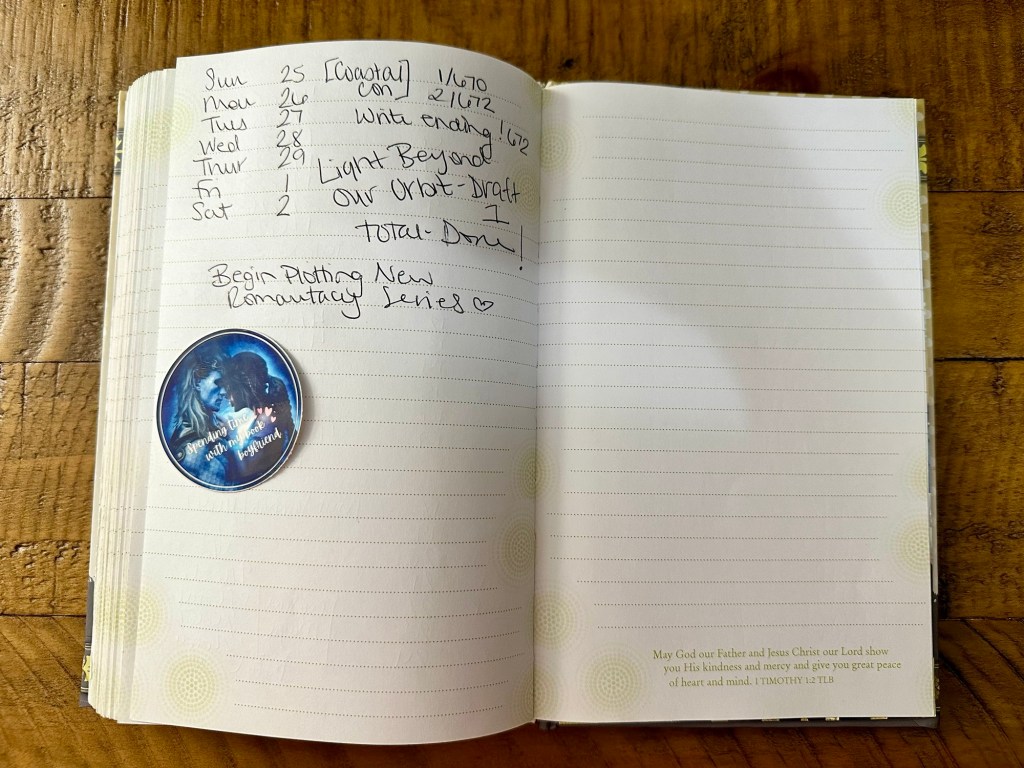 Sun 25 [Coastal 1/670
Mon 26 Con] 2/672
Tues 27 Write ending! 672
Wed 28
Thur 29 Light Beyond
Fri 1 Our Orbit - Draft
Sat 2 1
Total - Done!
Begin Plotting New
Romantacy Series ♡
Spending time
with my book
boyfriend
May God our Father and Jesus Christ our Lord show
you His kindness and mercy and give you great peace
of heart and mind. 1 TIMOTHY 1:2 TLB